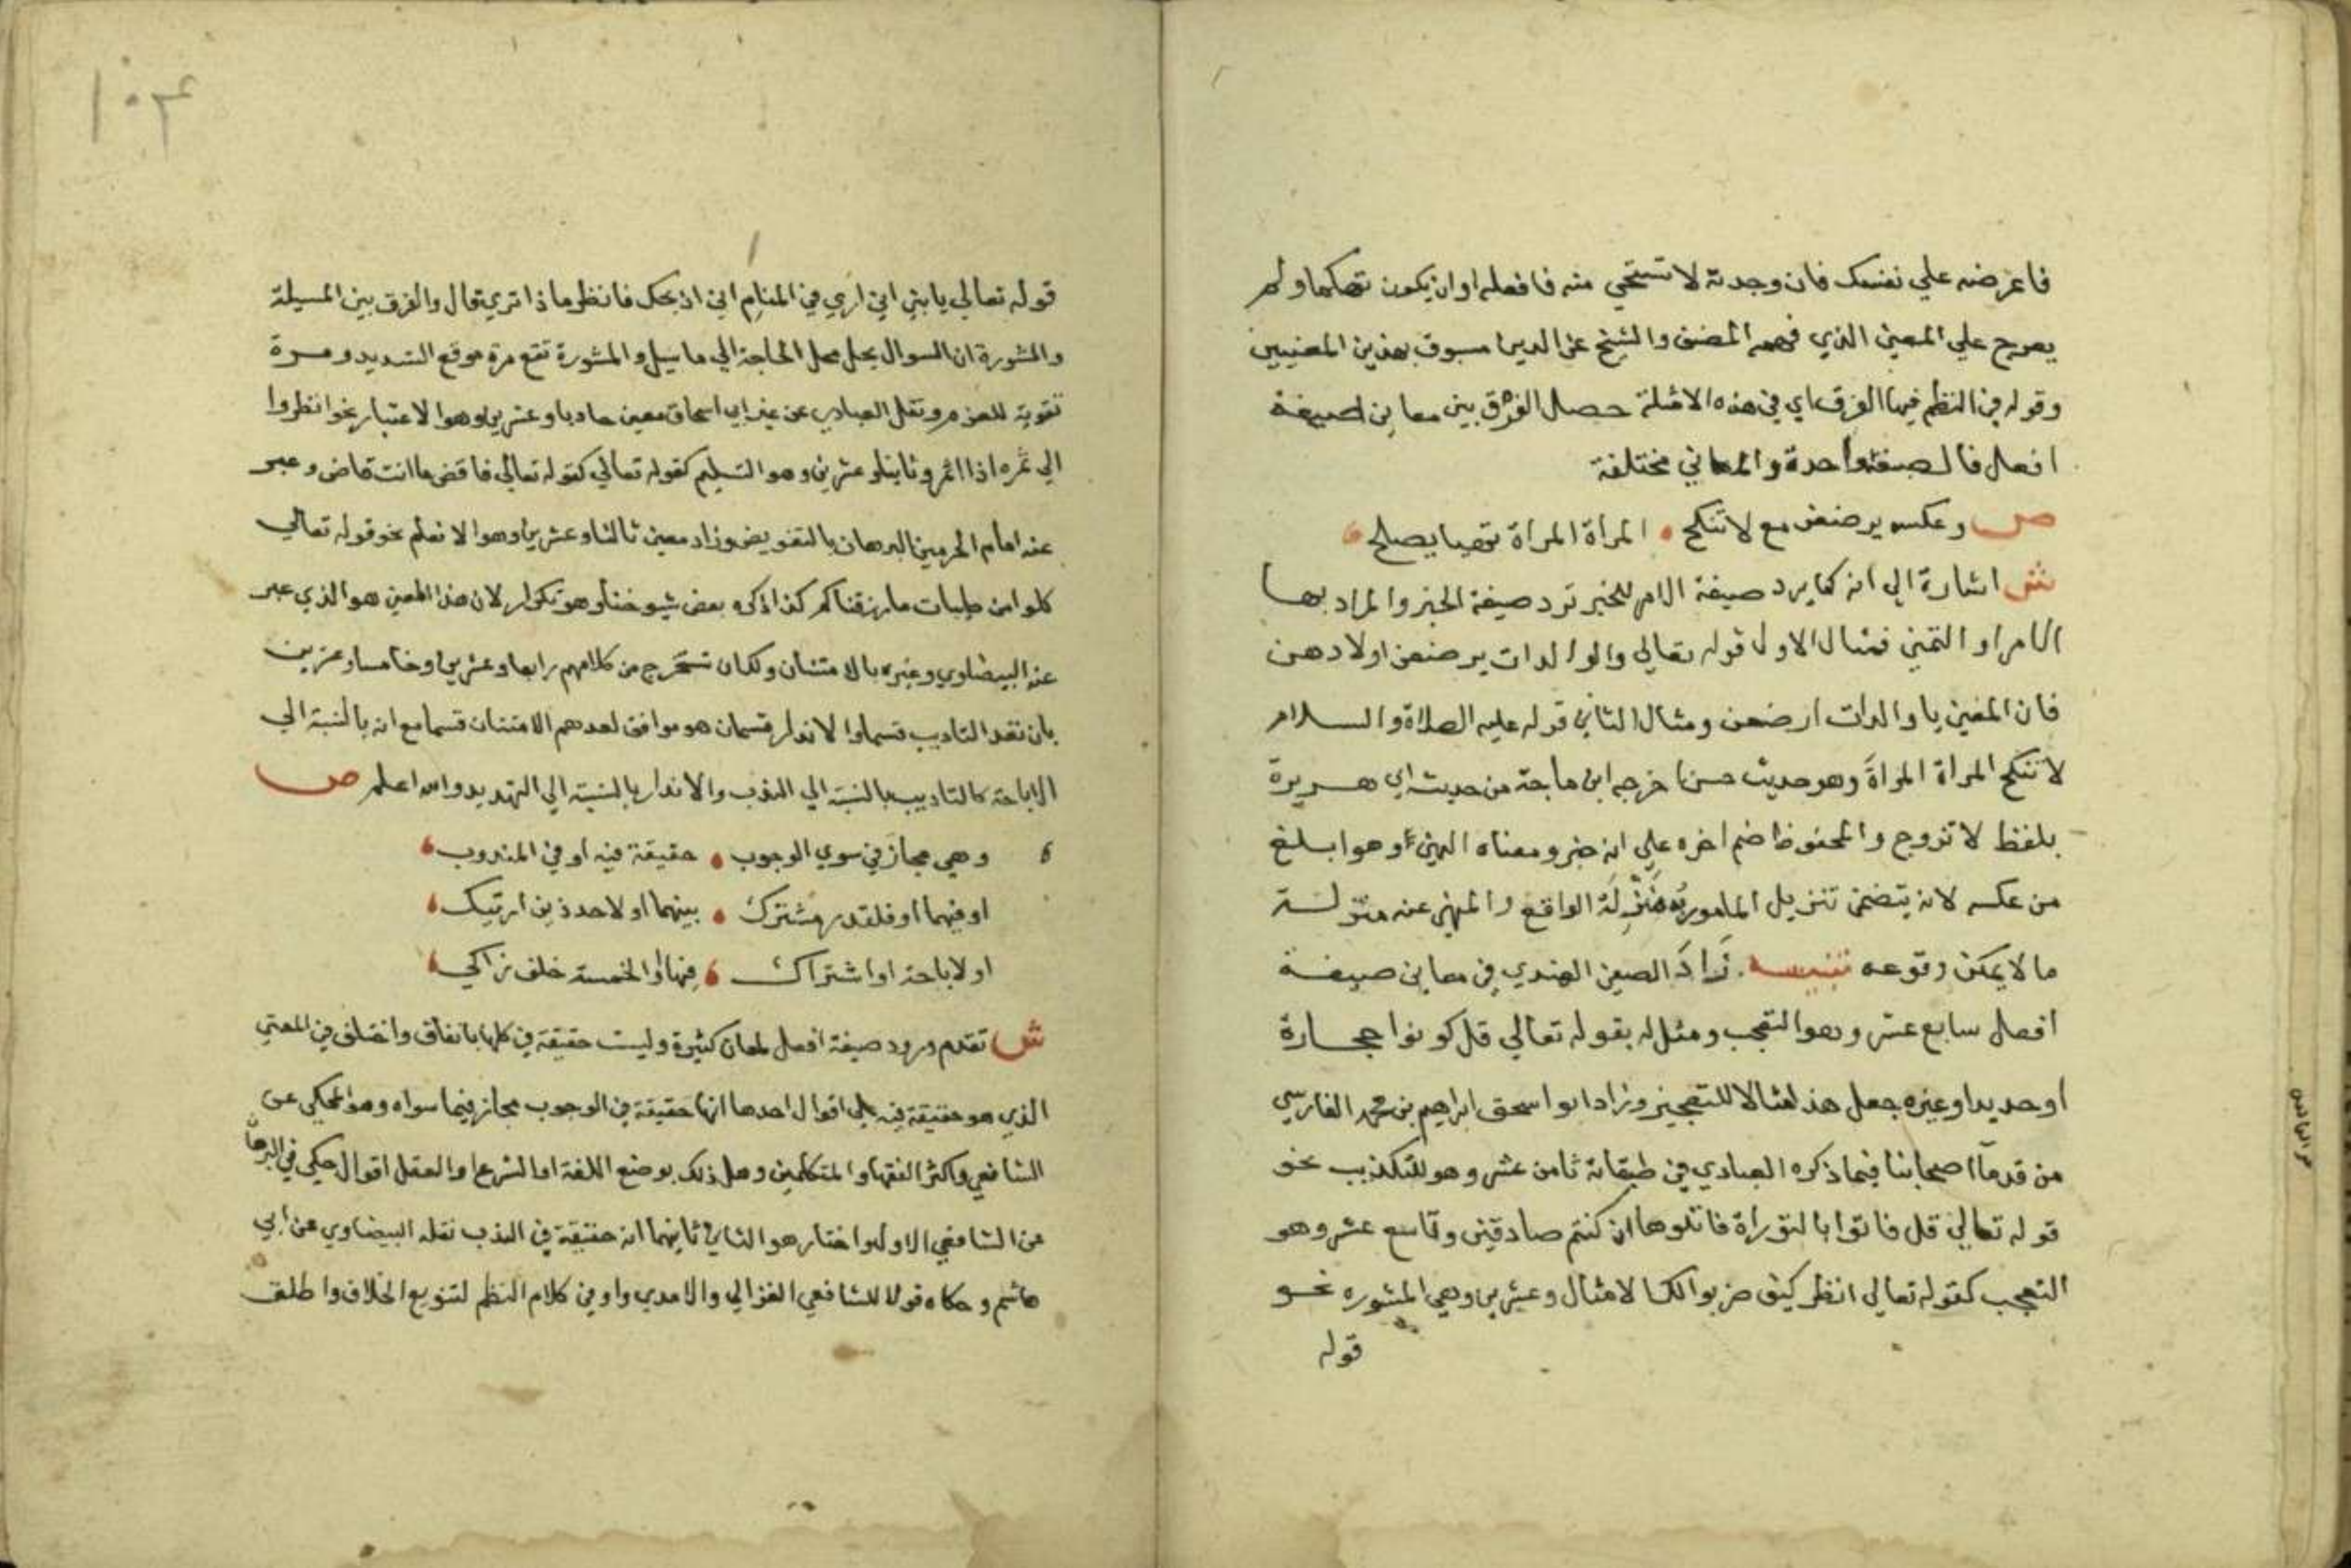 فاعرضه علي نفسك فان وجدته لا تستحي منه فافعله او ان يكون تهكما ولم
يعرج علي المعني الذي فهمه المصنف والشيخ عز الدين مسبوق بهذين المعنيين
وقوله في النظم فيها الفرق اي في هذه الامثلة حصل الفرق بين معاني صيغة
افعل فالصيغة واحدة والمعاني مختلفة
ص وعكسه يرضعن مع لا تنكح • المراة المراة نهيا يصلح
ش اشارة الي انه كما يرد صيغة الامر للخبر ترد صيغة الخبر والمراد بها
الامر او التمني فمثال الاول قوله تعالي والوالدات يرضعن اولادهن
فان المعني يا والدات ارضعن ومثال الثاني قوله عليه الصلاة والسلام
لا تنكح المراة المراة وهو حديث حسن اخرجه ابن ماجة من حديث ابي هريرة
بلفظ لا تزوج والمحفوظ ضم اخره علي انه خبر ومعناه النهي وهو ابلغ
من عكسه لانه يتضمن تنزيل المامور به منزلة الواقع والمنهي عنه منزلة
ما لا يمكن وقوعه تنبيه . زاد الصفي الهندي في معاني صيغة
افعل سابع عشر وهو التعجب ومثل له بقوله تعالي قل كونوا حجارة
او حديدا وغيره جعل هذا مثالا للتعجيز وزاد ابو اسحق ابراهيم بن محمد الفارسي
من قدما اصحابنا فيما ذكره العبادي في طبقاته ثامن عشر وهو للتكذيب نحو
قوله تعالي قل فاتوا بالتوراة فاتلوها ان كنتم صادقين وتاسع عشر وهو
التعجب كقوله تعالي انظر كيف ضربوا لك الامثال وعشرين وهي المشوره نحو
قوله
١٠٣
قوله تعالي يا بني اني اري في المنام اني اذبحك فانظر ماذا تري قال والفرق بين المسيلة
والمشورة ان السوال يحل محل الحاجة الي ما سيل والمشورة تقع مرة موقع التسديد ومرة
تقوية للعزم ونقل العبادي عن غير ابي اسحاق معني حاديا وعشرين وهو الاعتبار نحو انظروا
الي ثمره اذا اثمر وثانيا وعشرين وهو التسليم كقوله تعالي كقوله تعالي فاقض ما انت قاض وعبر
عنه امام الحرمين البرهان بالتفويض وزاد معني ثالثا وعشرين وهو الانعام نحو قوله تعالي
كلوا من طيبات ما رزقناكم كذا ذكره بعض شيوخنا وهو تكرار لان هذا المعني هو الذي عبر
عنه البيضاوي وغيره بالامتنان ولك ان تستخرج من كلامهم رابعا وعشرين وخامسا وعشرين
بان تعد التاديب قسما والانذار قسما هو موافق لعدهم الامتنان قسما مع انه بالنسبة الي
الاباحة كالتاديب بالنسبة الي الندب والانذار بالنسبة الي التهديد والله اعلم ص
وهي مجاز في سوي الوجوب • حقيقة فيه او في المندوب
او فيهما او فلقدر مشترك • بينهما او لاحد ذين ارتبك
او لاباحة او اشتراك • فيها والخمسة خلف زاكي
ش تقدم ورود صيغة افعل لمعان كثيرة وليست حقيقة في كلها باتفاق واختلف في المعني
الذي هو حقيقة فيه علي اقوال احدها انها حقيقة في الوجوب مجاز فيما سواه وهو المحكي عن
الشافعي واكثر الفقها والمتكلمين وهل ذلك بوضع اللغة او الشرع او العقل اقوال حكي في البرهان
عن الشافعي الاول واختار هو الثاني ثانيهما انه حقيقة في الندب نقله البيضاوي عن ابي
هاشم وحكاه قولا للشافعي الغزالي والامدي واو في كلام النظم لتنويع الخلاف واطلق